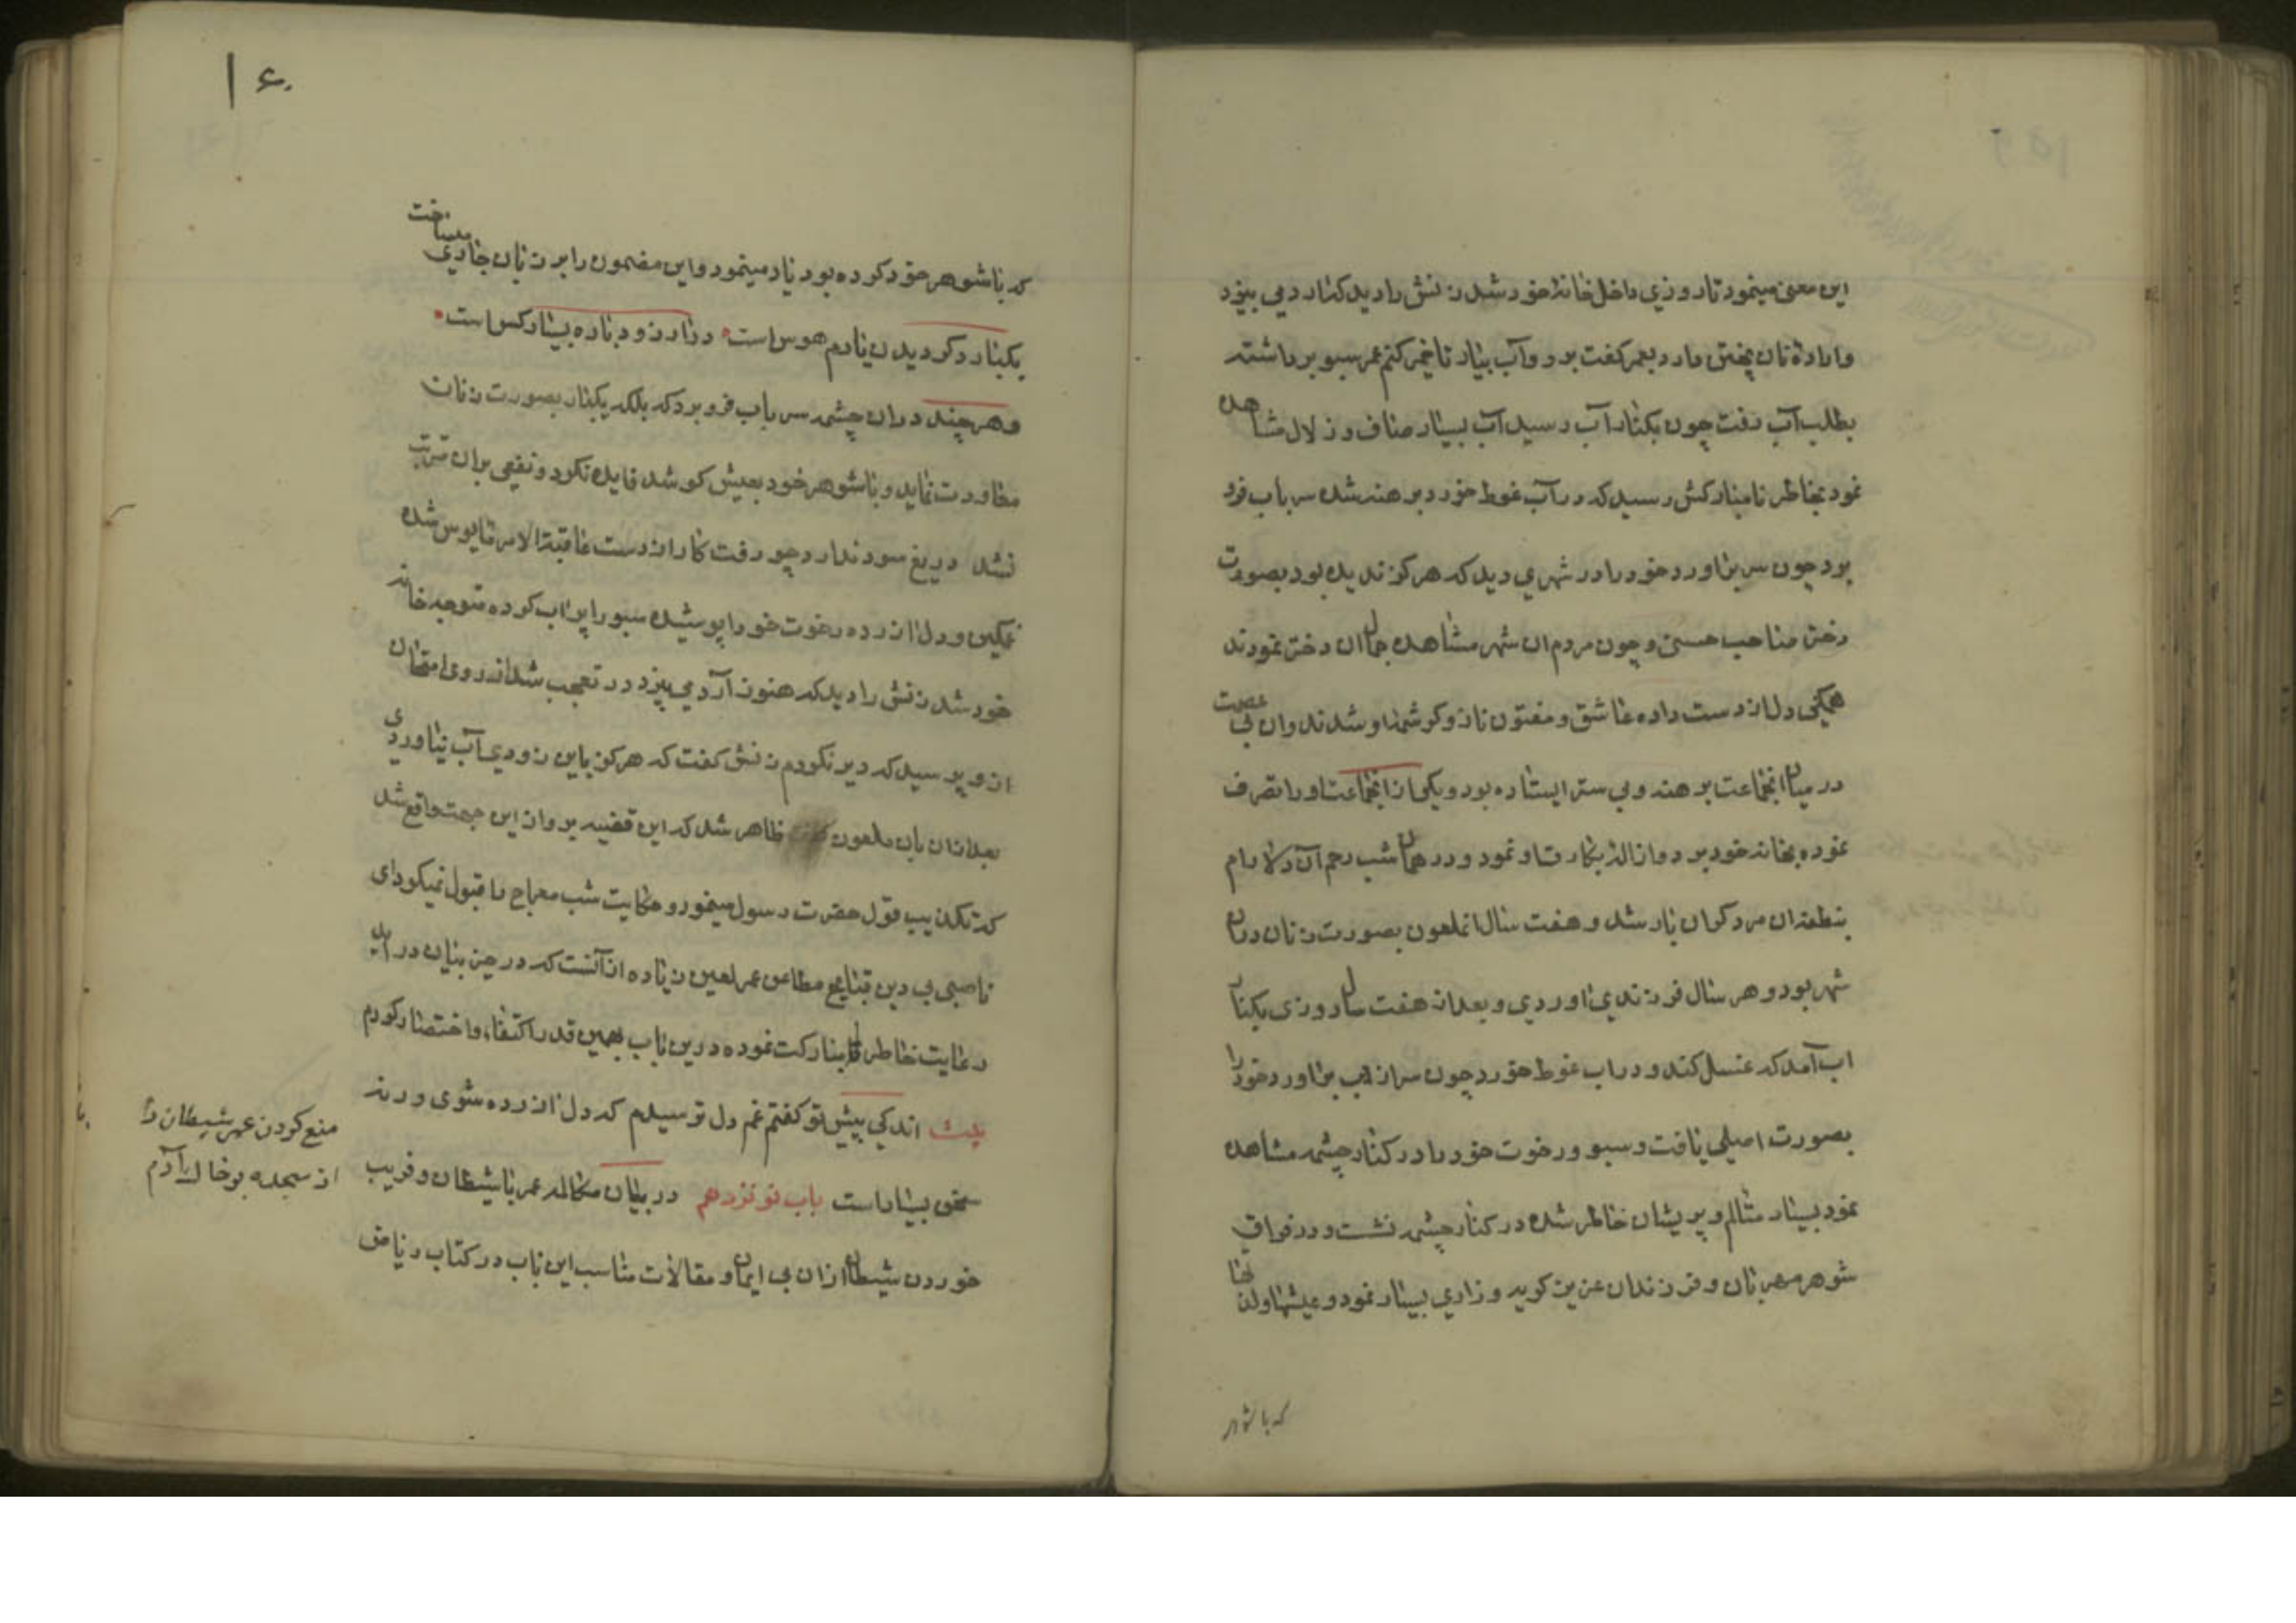 این معنی مینمود تا روزی داخل خانهٔ خود شد زنش را دید که آرد می بیزد
و ارادهٔ نان پختن دارد بعمر گفت برو و آب بیار تا خمیر کنم عمر سبو برداشته
بطلب آب رفت چون بکنار آب رسید آب بسیار صاف و زلال مشاهده
نمود بخاطر نامبارکش رسید که در آب غوطه خورد برهنه شده سر باب فرو
برد چون سر براورد خود را در شهری دید که هرگز ندیده بود بصورت
دختر صاحب حسنی و چون مردم ان شهر مشاهده جمال ان دختر نمودند
همگی دل از دست داده عاشق و مفتون ناز و کرشمهٔ او شدند و ان بی عصمت
در میان انجماعت برهنه و بی ستر ایستاده بود و یکی از انجماعت او را تصرف
نموده بخانه خود برد و ازاله بکارت او نمود و در همان شب رحم آن دلارام
بنطفه ان مرد گران بار شد و هفت سال انملعون بصورت زنان دران
شهر بود و هر سال فرزندی اوردی و بعد از هفت سال روزی بکنار
اب آمد که غسل کند و در اب غوطه خورد چون سر از اب براورد خود را
بصورت اصلی یافت و سبو و رخوت خود را در کنار چشمه مشاهده
نمود بسیار متالم و پریشان خاطر شده در کنار چشمه نشست و در فراق
شوهر مهربان و فرزندان عزیز گریه و زاری بسیار نمود و عیشها و لذتها
که با شوهر
۱۶۰
که با شوهر خود کرده بود یاد مینمود و این مضمون را بر زبان جاری میساخت
یکبار دگر دیدن یارم هوس است در ارزو دوباره بسیار کس است
و هر چند دران چشمه سر باب فرو برد که بلکه یکبار بصورت زنان
معاودت نماید و با شوهر خود بعیش کوشد فایده نکرد و نفعی بران مترتب
نشد دریغ سود ندارد چو رفت کار از دست عاقبة الامر مایوس شده
غمگین و دل ازرده رخوت خود را پوشیده سبو را پر اب کرده متوجه خانه
خود شد زنش را دید که هنوز آرد می بیزد در تعجب شد از روی امتحان
از و پرسید که دیر نکردم زنش گفت که هرگز باین زودی آب نیاوردی
بعد از ان بان ملعون ظاهر شد که این قضیه برو از این جهت واقع شد
که تکذیب قول حضرت رسول مینمود و حکایت شب معراج را قبول نمیکرد ای
ناصبی بی دین قبایح مطاعن عمر لعین زیاده از آنست که در حیز بیان در اید
رعایت خاطر نامبارکت نموده درین باب بهمین قدر اکتفا و اختصار کردم
بیت اندکی پیش تو گفتم غم دل ترسیدم که دل ازرده شوی ورنه
سخن بسیار است باب نوزدهم در بیان مکالمه عمر با شیطان و فریب
خوردن شیطان ازان بی ایمان و مقالات مناسب این باب در کتاب ریاض
منع کردن عمر شیطان را
از سجده بو خاک آدم